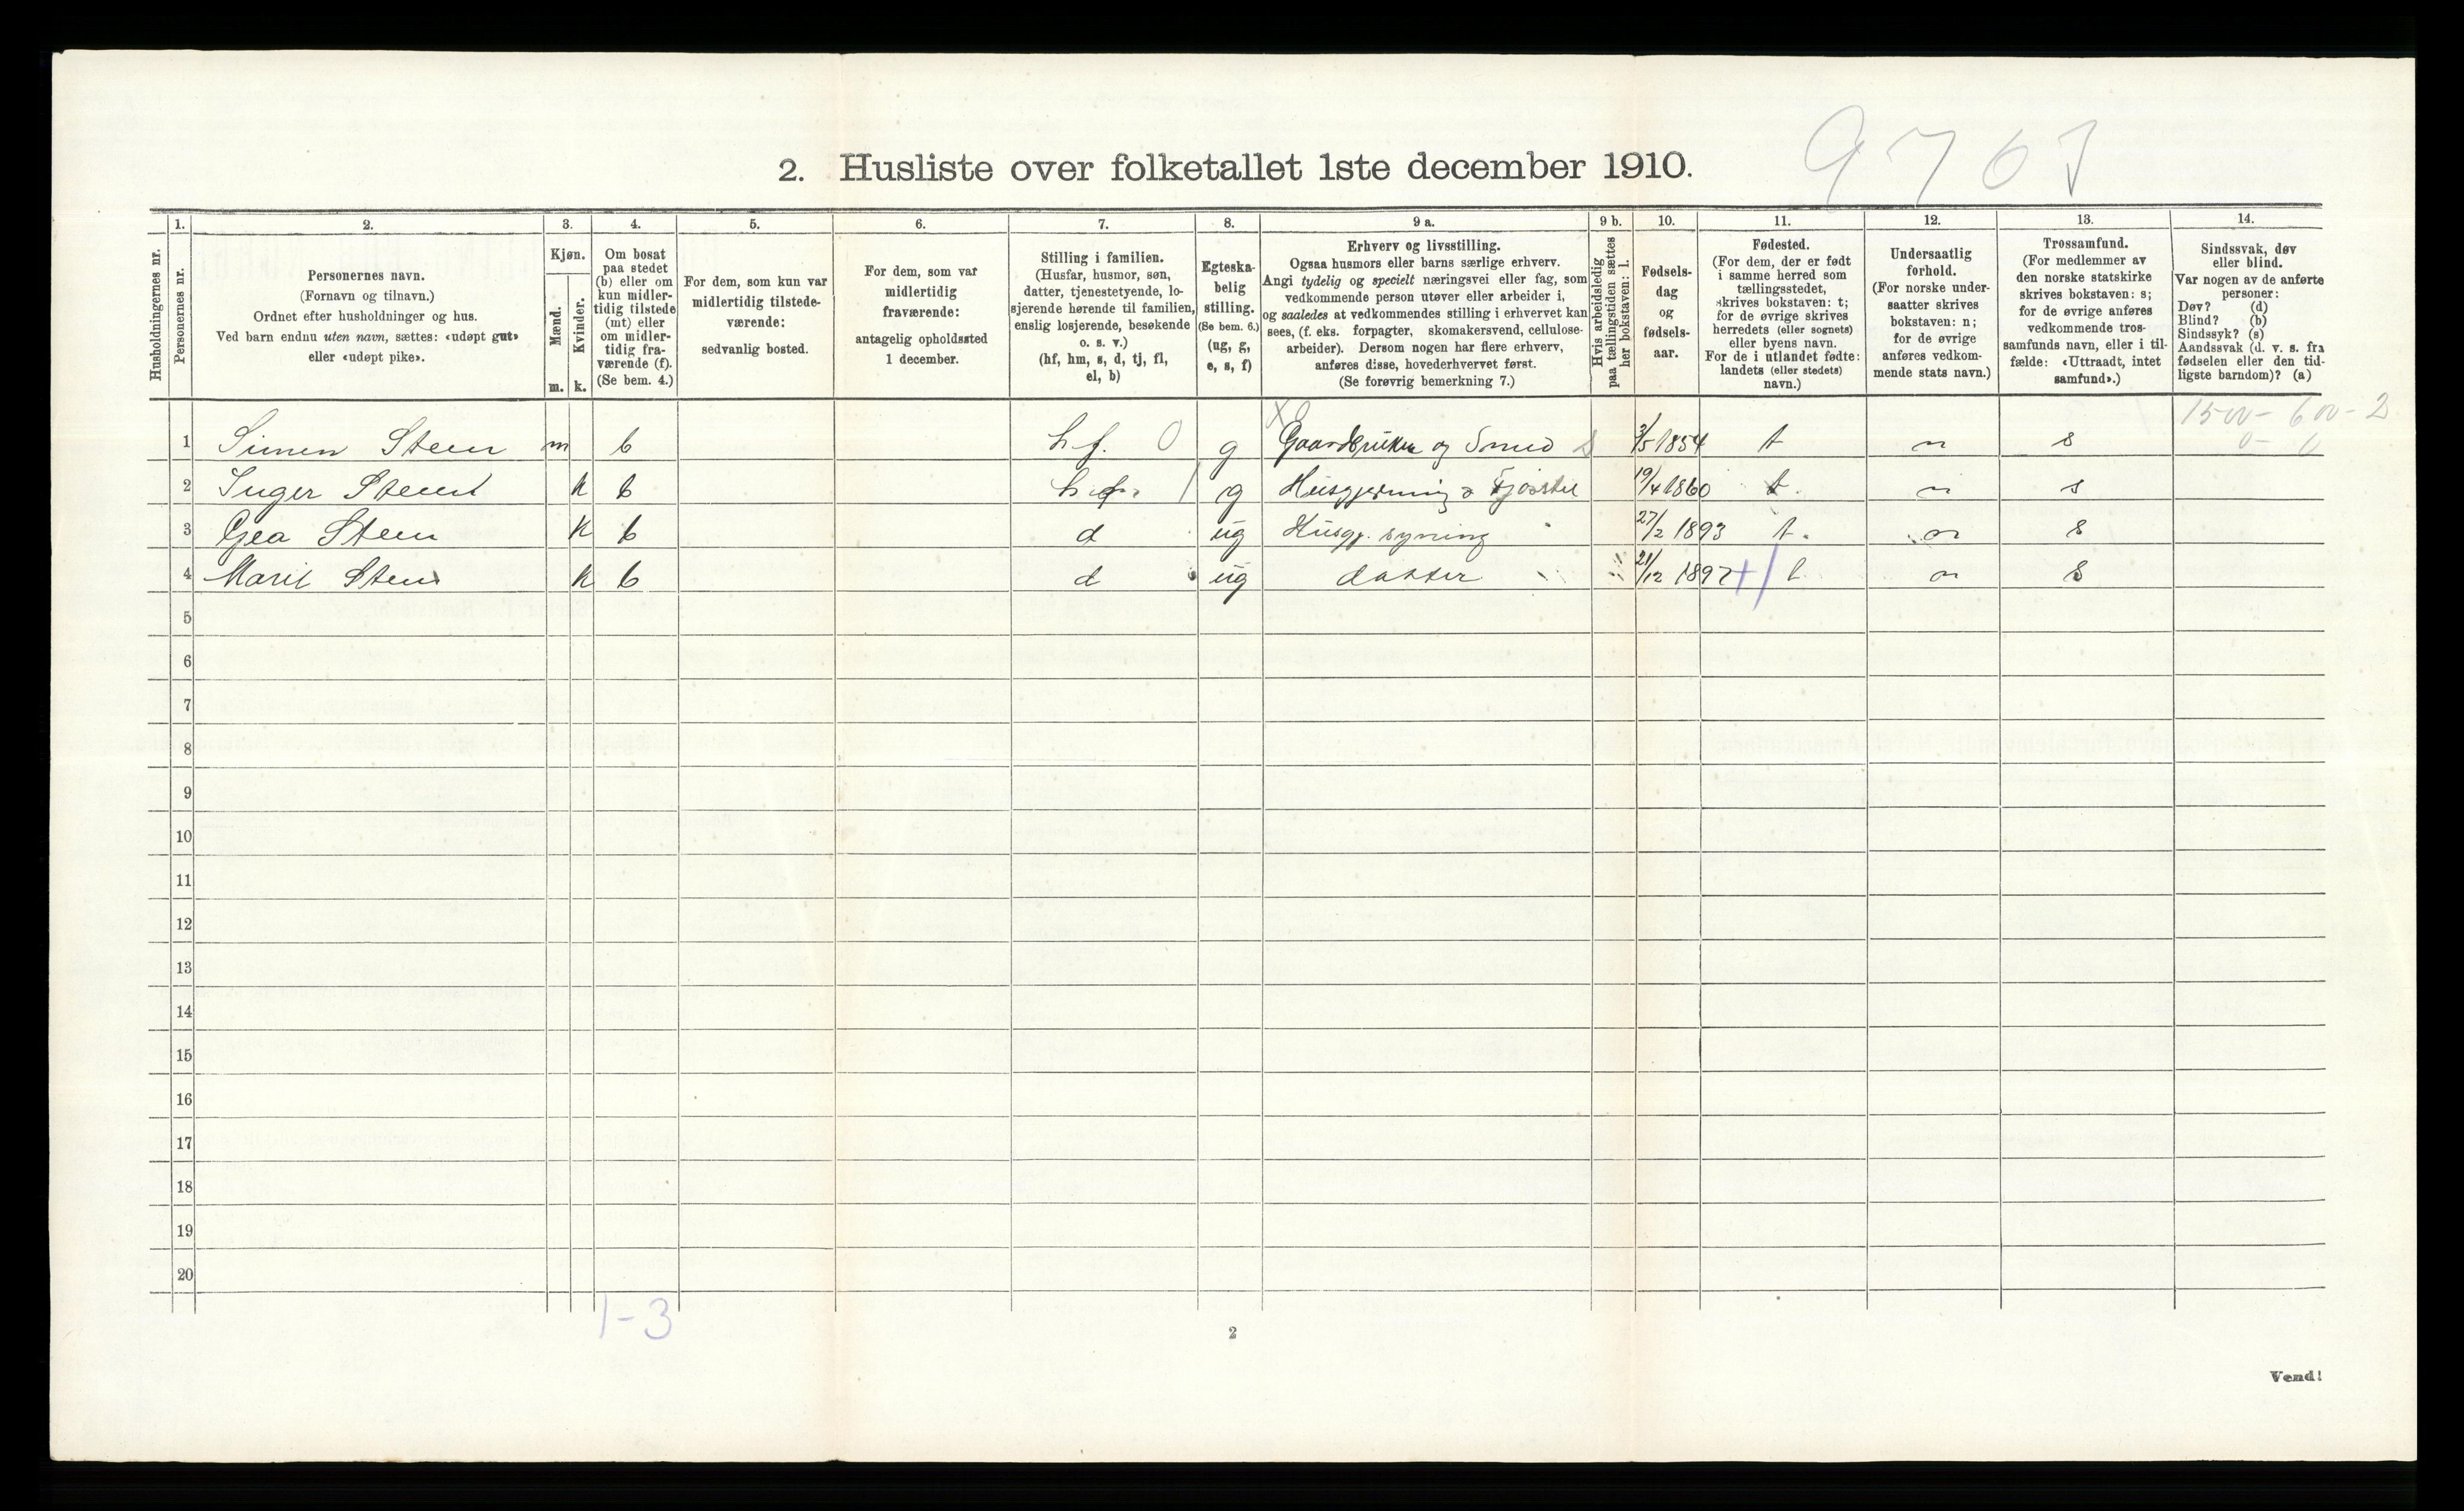 2. Husliste over folketallet 1ste december 1910.
1. 2. 3. 4. 5. 6. 7. 8. 9 a. 9 b. 10. 11. 12. 13. 14.
Husholdningernes nr.
Personernes nr.
Personernes navn.
(Fornavn og tilnavn.)
Ordnet efter husholdninger og hus.
Ved barn endnu uten navn, sættes: «udøpt gut»
eller «udøpt pike».
Kjøn.
Mænd.
Kvinder.
m. k.
Om bosat
paa stedet
(b) eller om
kun midler-
tidig tilstede
(mt) eller
om midler-
tidig fra-
værende (f).
(Se bem. 4.)
For dem, som kun var
midlertidig tilstede-
værende:
sedvanlig bosted.
For dem, som var
midlertidig
fraværende:
antagelig opholdssted
1 december.
Stilling i familien.
(Husfar, husmor, søn,
datter, tjenestetyende, lo-
sjerende hørende til familien,
enslig losjerende, besøkende
o. s. v.)
(hf, hm, s, d, tj, fl,
el, b)
Egteska-
belig
stilling.
(Se bem. 6.)
(ug, g,
e, s, f)
Erhverv og livsstilling.
Ogsaa husmors eller barns særlige erhverv.
Angi tydelig og specielt næringsvei eller fag, som
vedkommende person utøver eller arbeider i,
og saaledes at vedkommendes stilling i erhvervet kan
sees, (f. eks. forpagter, skomakersvend, cellulose-
arbeider). Dersom nogen har flere erhverv,
anføres disse, hovederhvervet først.
(Se forøvrig bemerkning 7.)
Hvis arbeidsledig
paa tællingstiden sættes
her bokstaven: l.
Fødsels-
dag
og
fødsels-
aar.
Fødested.
(For dem, der er født
i samme herred som
tællingsstedet,
skrives bokstaven: t;
for de øvrige skrives
herredets (eller sognets)
eller byens navn.
For de i utlandet fødte:
landets (eller stedets)
navn.)
Undersaatlig
forhold.
(For norske under-
saatter skrives
bokstaven: n;
for de øvrige
anføres vedkom-
mende stats navn.)
Trossamfund.
(For medlemmer av
den norske statskirke
skrives bokstaven: s;
for de øvrige anføres
vedkommende tros-
samfunds navn, eller i til-
fælde: «Uttraadt, intet
samfund».)
Sindssvak, døv
eller blind.
Var nogen av de anførte
personer:
Døv? (d)
Blind? (b)
Sindssyk? (s)
Aandssvak (d. v. s. fra
fødselen eller den tid-
ligste barndom)? (a)
1500 - 600 - 2
0 - 0
1 Simen Steen m b hf. 0 g Gaardbruker og Smed 3/5 1854 t n s
2 Inger Steen k b g Husgjerning 19/4 1860 t. n s
3 Gea Steen k b d ug Husgj. syning 27/2 1893 t. n s
4 Marit Steen k b d ug datter 21/12 1897 t n s
5
6
7
8
9
10
11
12
13
14
15
16
17
18
19
20
1-3
2
Vend!